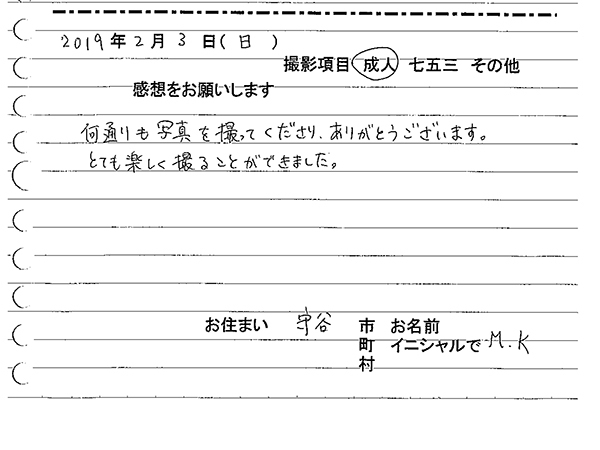 2019年2月3日(日)
撮影項目 成人 七五三 その他
感想をお願いします
何通りも写真を撮ってくださり、ありがとうございます。
とても楽しく撮ることができました。
お住まい 守谷 市 お名前
町 イニシャルで M.K
村